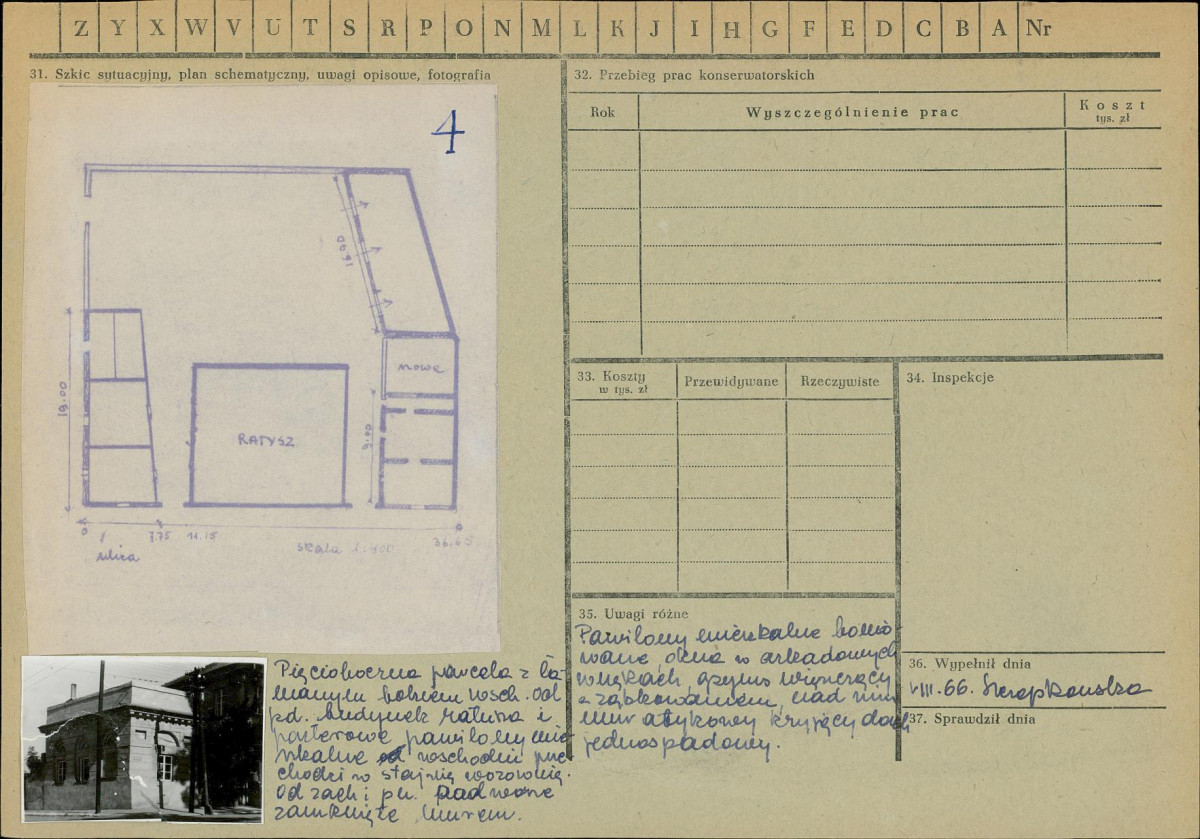 Z Y X W V U T S R P O N M L K J I H G F E D C B A Nr
31. Szkic sytuacyjny, plan schematyczny, uwagi opisowe, fotografia
4
16.90
nowe
19.00
RATUSZ
9.00
0 7.75 11.15 36.65
ulica
skala 1:400
Pięcioboczna parcela z ła-
manym bokiem wsch. Od
pd. budynek ratusza i
parterowe pawilony mie-
szkalne od wschodu prze-
chodzi w stajnię wozownię.
Od zach i pn.
zamknięte murem.
32. Przebieg prac konserwatorskich
Rok
Wyszczególnienie prac
Koszt
tys. zł
33. Koszty
w tys. zł
Przewidywane
Rzeczywiste
34. Inspekcje
35. Uwagi różne
Pawilony mieszkalne bonio-
wane, okna w arkadowych
wnękach, gzyms wieńczący
z ząbkowaniem, nad nim
mur atykowy kryjący dach
jednospadowy.
36. Wypełnił dnia
VIII. 66.
37. Sprawdził dnia